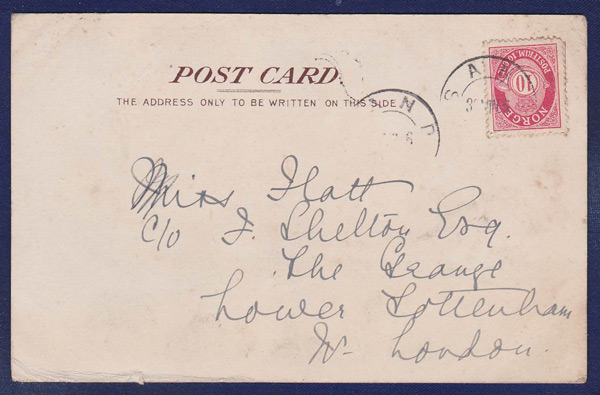 POST CARD.
THE ADDRESS ONLY TO BE WRITTEN ON THIS SIDE
SAND
30
6
NORGE
10
POSTFRIM
Miss Flatt
c/o F. Shelton Esq.
The Grange
Lower Tottenham
N. London.